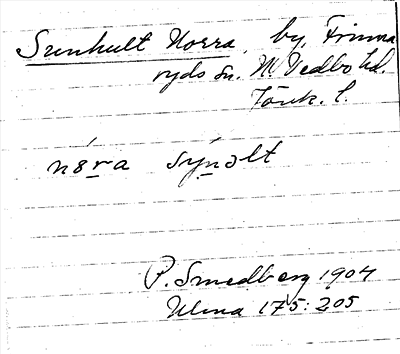 Sunhult Norra, by, Finna
ryds sn. N Vedbo hd.
Jönk. l.
nǿra sýnəlt
P. Smedberg 1904
Ulma 175: 205